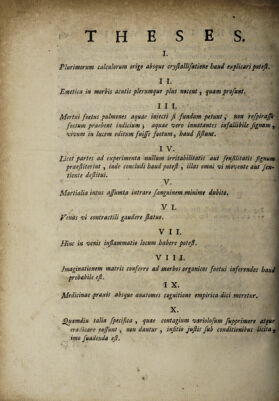 THESES.
I.
Plurimorum calculorum origo absque crystallisatione haud explicari potest.
II.
Emetica in morbis acutis plerumque plus nocent, quam prosunt.
III.
Mortui foetus pulmones aquae injecti si fundum petunt, non respirasse
foetum praebent indicium, aquae vero innatantes infallibile signum,
vivum in lucem editum fuisse foetum, haud sistunt.
IV.
Licet partes ad experimenta nullum irritabilitatis aut sensilitatis signum
praestiterint, inde concludi haud potest, illas omni vi movente aut sen-
tiente destitui.
V.
Martialia intus assumta intrare sanguinem minime dubito.
VI.
Venas vi contractili gaudere statuo.
VII.
Hinc in venis inflammatio locum habere potest.
VIII.
Imaginationem matris conferre ad morbos organicos foetui inferendos haud
probabile est.
IX.
Medicinae praxis absque anatomes cognitione empirica dici meretur.
X.
Quamdiu talia specifica, quae contagium variolosum supprimere atque
eradicare possunt, non dantur, insitio justis sub conditionibus licita,
imo suadenda est.